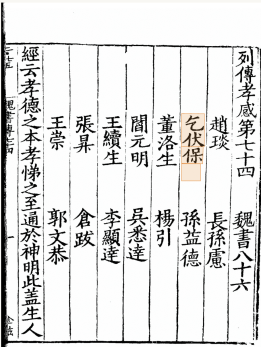 列傳孝感第七十四 魏書八十六
趙琰 長孫慮
乞伏保 孫益德
董洛生 楊引
閻元明 吳悉達
王續生 李顯達
張昇 倉跋
王崇 郭文恭
經云孝德之本孝悌之至通於神明此盖生人
魏書傳七十四 一